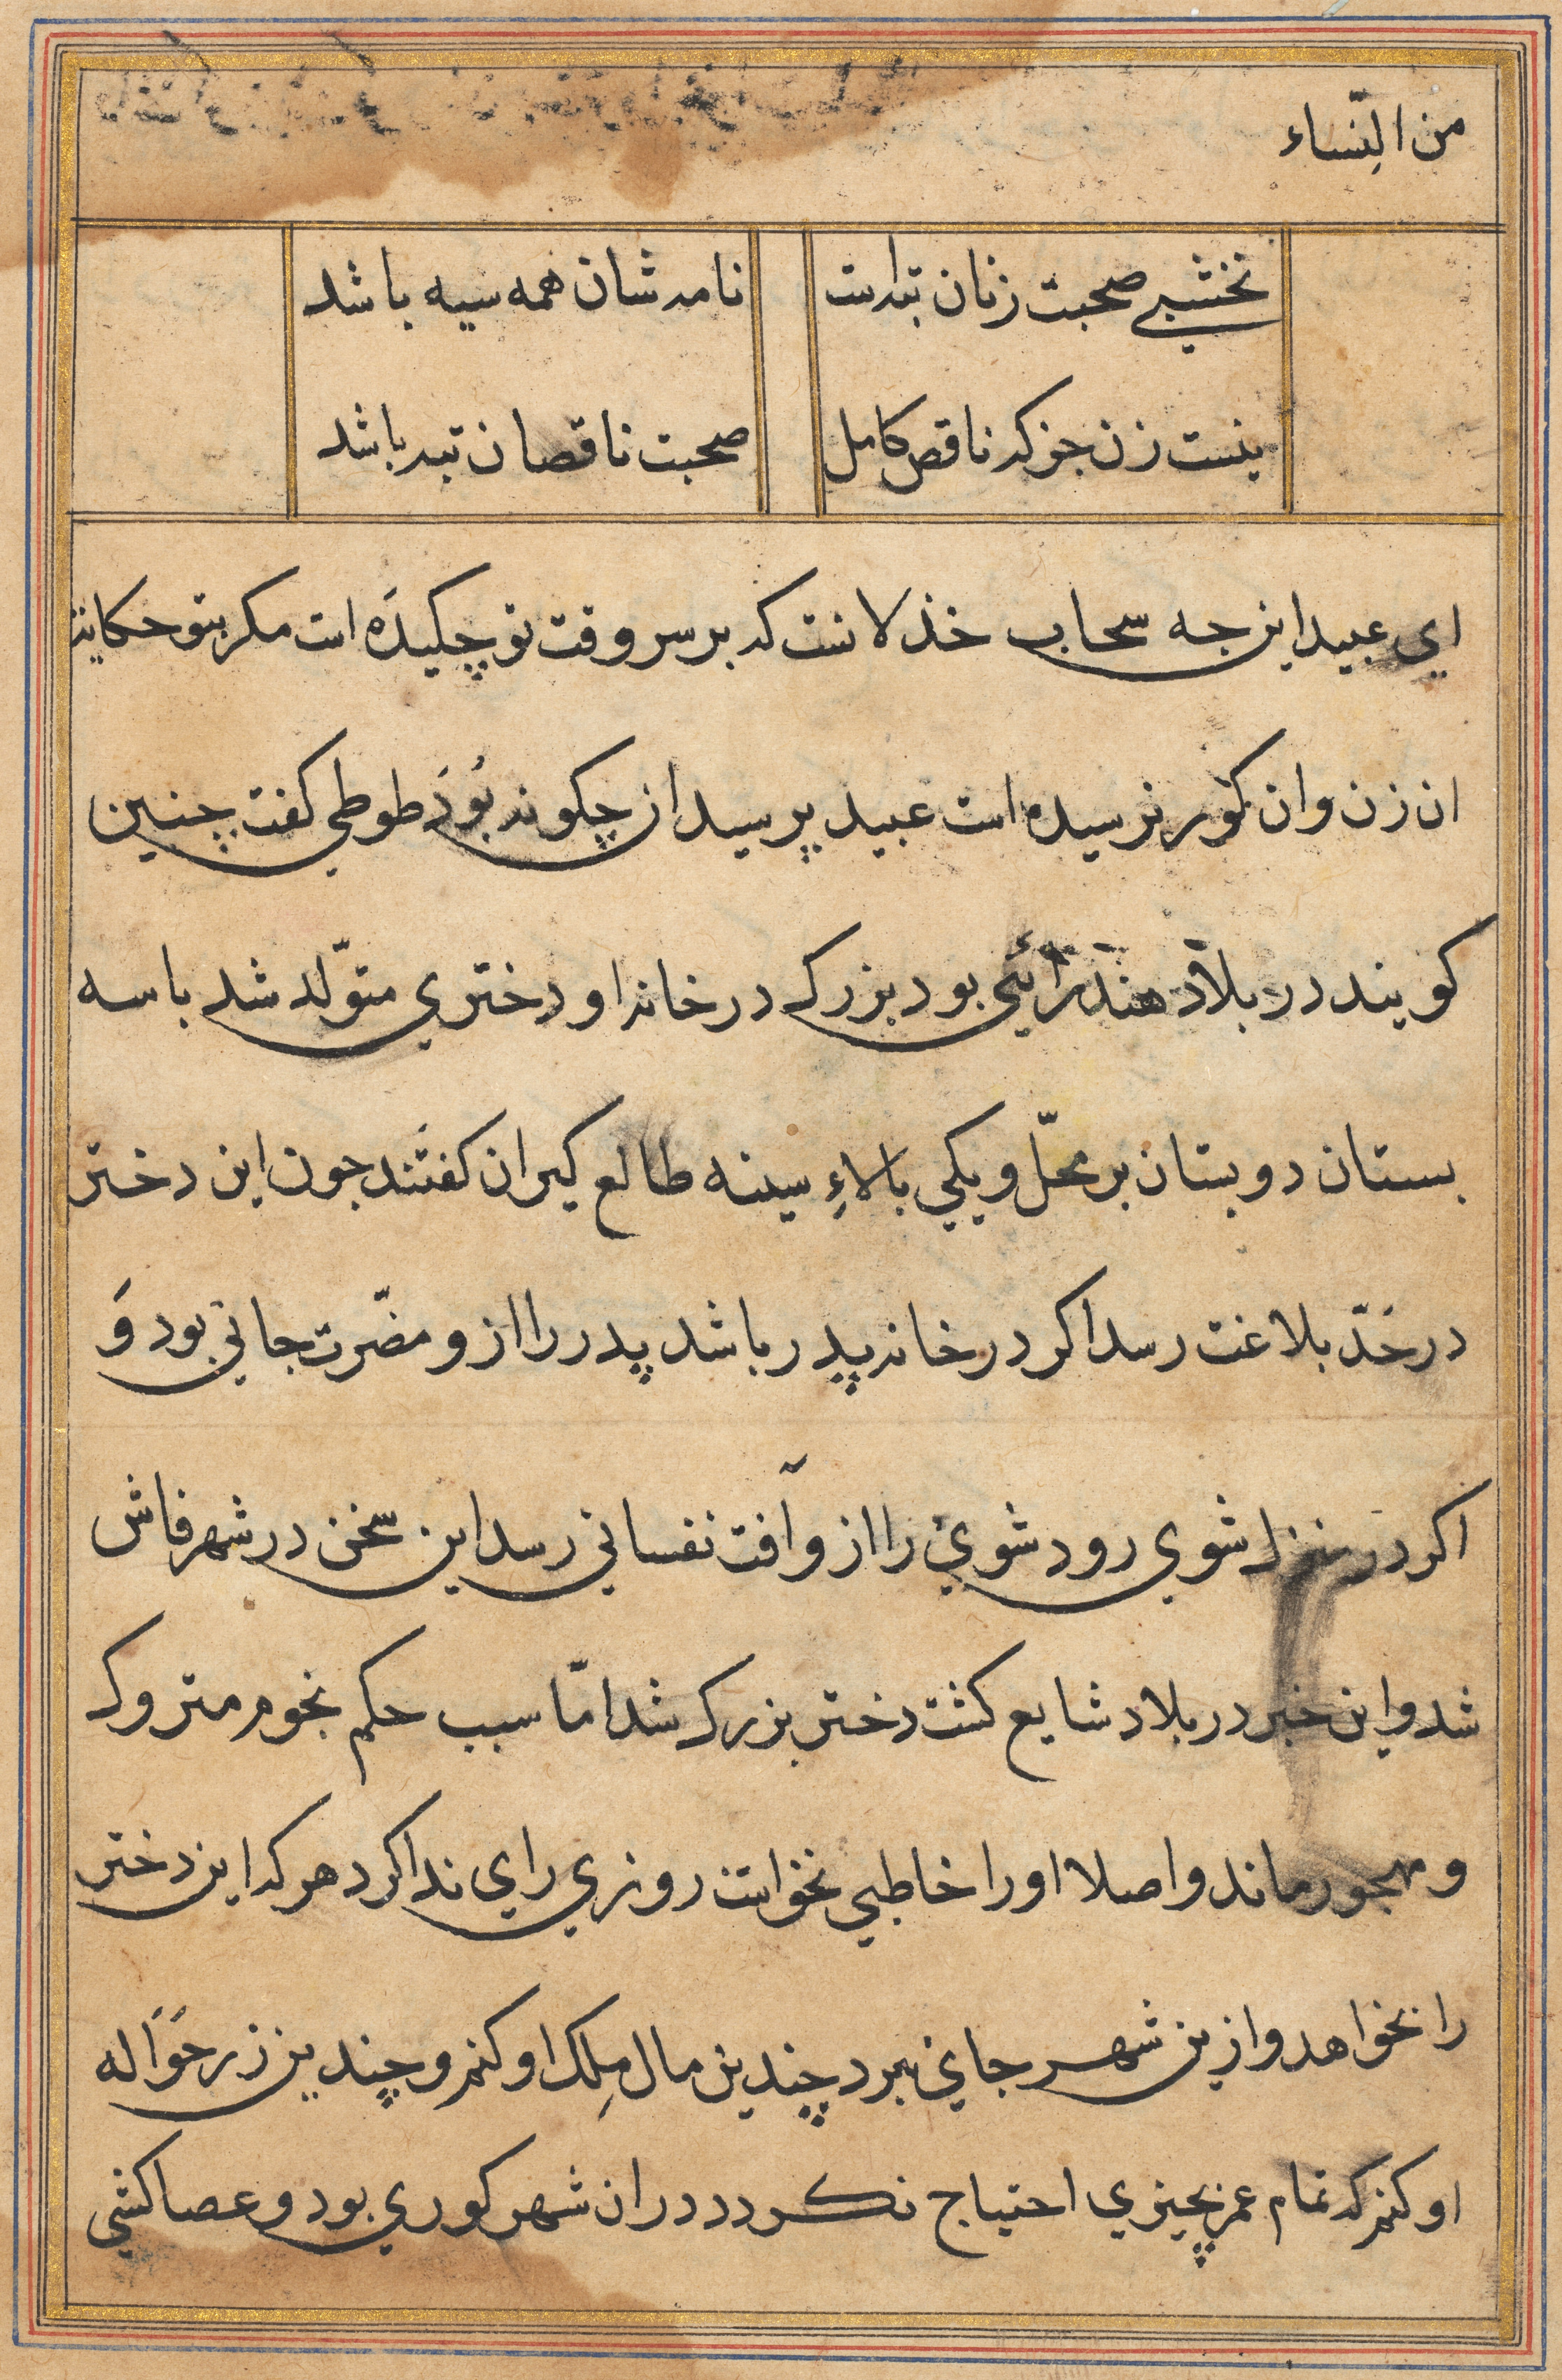 من النّساء
نخشبي صحبت زنان تبه است نامه شان همه سیه باشد
نیست زن جز که ناقص کامل صحبت ناقصان تبه باشد
اي عبید این جه سحاب خذلانست که بر سر وقت تو چکیدَه است مکر بتو حکایت
ان زن وان کور نرسیده است عبید پرسید ان چکونه بُوَد طوطي کفت چنین
کویند در بلاد هند رائي بود بزرک در خانه او دختري متوّلد شد با سه
بستان دو بستان بر محلّ و یکي بالاءِ سینه طالع کیران کفتند جون این دختر
در حَدّ بلاغت رسد اکر در خانه پدر باشد پدر را از و مضّرت جاني بود وَ
اکر در منزل شوي رود شوي را از و آفت نفساني رسد این سخن در شهر فاش
شد واین خبر در بلاد شایع کشت دختر بزرک شد امّا سبب حکم نجوم متروک
و مهجور ماند و اصلا او را خاطبي نخواست روزي راي ندا کرد هر که این دختر
را بخواهد و ازین شهر جاي ببرد چندین مال مِلک او کنم و چندین زر حَوَاله
او کنم که تمام عمر بچیزي احتیاج نکردد دران شهر کوري بود و عصا کشي